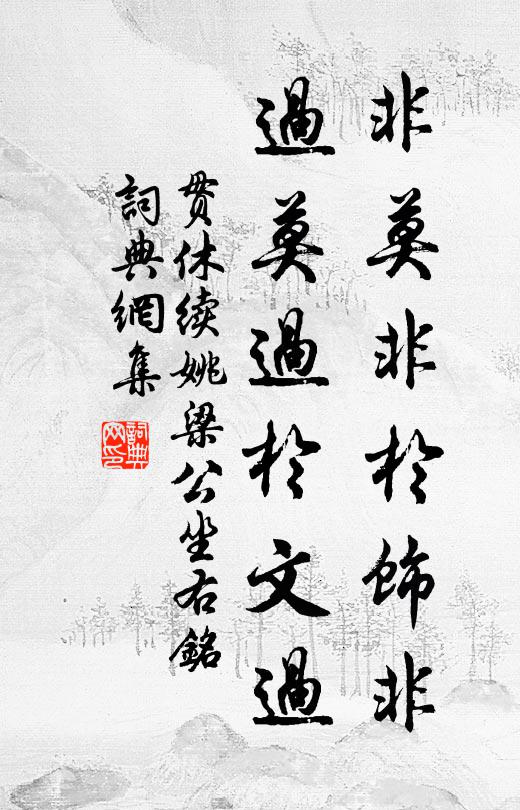 非莫非於飾非
過莫過於文過
贯休续姚梁公坐右銘
詞典網集
詞典网印